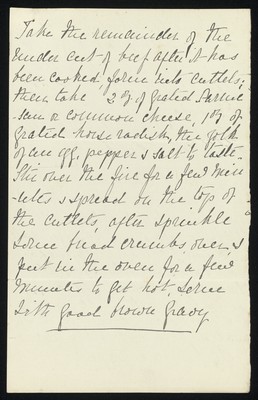 Take the remainder of the
under cut of beef after it has
been cooked form into cutlets;
then take 2 oz of grated Parme
-san or common cheese, 1 oz of
grated horse radish, the yolk
of an egg, pepper & salt to taste.
Stir over the fire for a few min
-utes & spread on the top of
the cutlets, after sprinkle
some bread crumbs over, &
put in the oven for a few
minutes to get hot. Serve
with good brown gravy